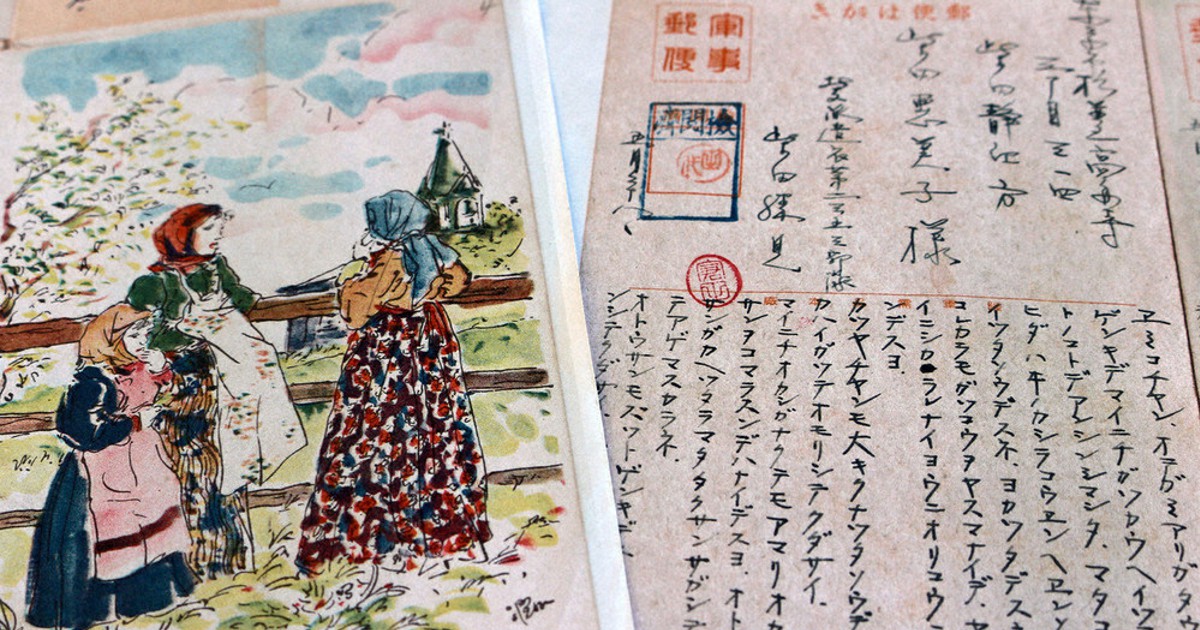 郵便はがき
軍事
郵便
検閲済
杉並区高円寺
三丁目三一四
柴田静江方
柴田恵美子様
柴田勝見
五月
ヱミコチヤン、オテガミアリガタウ
ゲンキデマイニチガツカウヘイツ
トノコトデアンシンシマシタ.マタコ
ヒダハキカシラコウエンヘヱン
イツタソウデスネ.ヨカツタデス
コレカラモガツコウヲヤスマナイデ.セ
ランナイヨウニオリコウ
ンデスヨ.
カツヤチヤンモ大キクナツタソウデ
カハイガツテオモリシテクダサイ.
マイニチオクシガナクテモアマリオカ
サンヲコマラスンデハナイデスヨ.オト
サンガカヘツタラマタタクサンサガシ
テアゲマスカラネ.
オトウサンモズツトゲンキデ